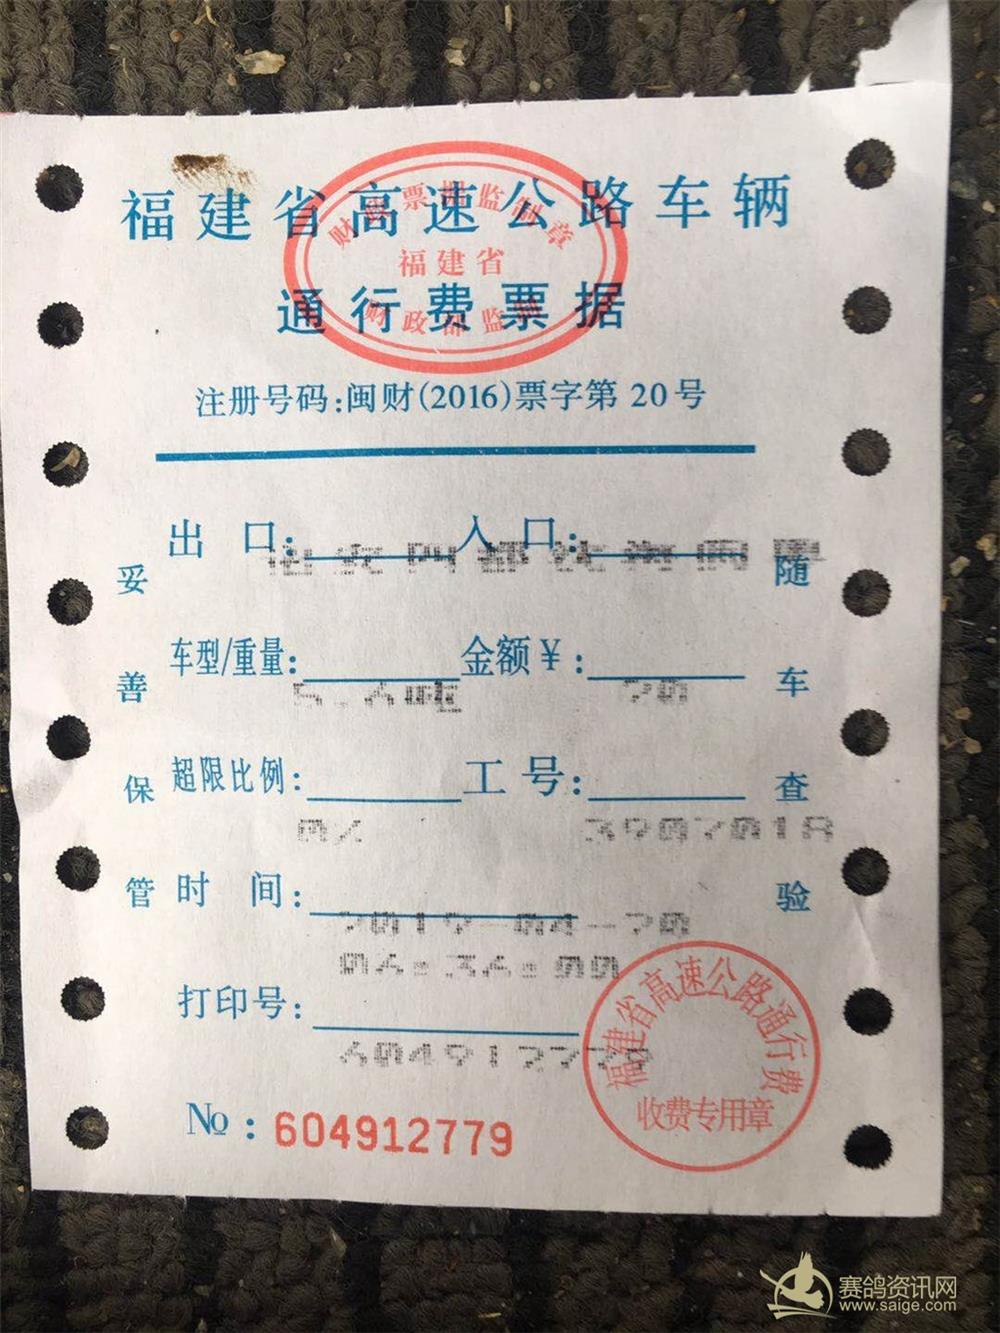 福建省高速公路车辆
通行费票据
财政票据监制章
福建省
财政部监制
注册号码:闽财(2016)票字第 20号
出 口: 入 口:
车型/重量: 金额￥:
5. 吨 20
超限比例: 工 号:
0% 3907018
时 间:
打印号:
妥善保管
随车查验
№ : 604912779
福建省高速公路通行费
收费专用章
赛鸽资讯网
www.saige.com